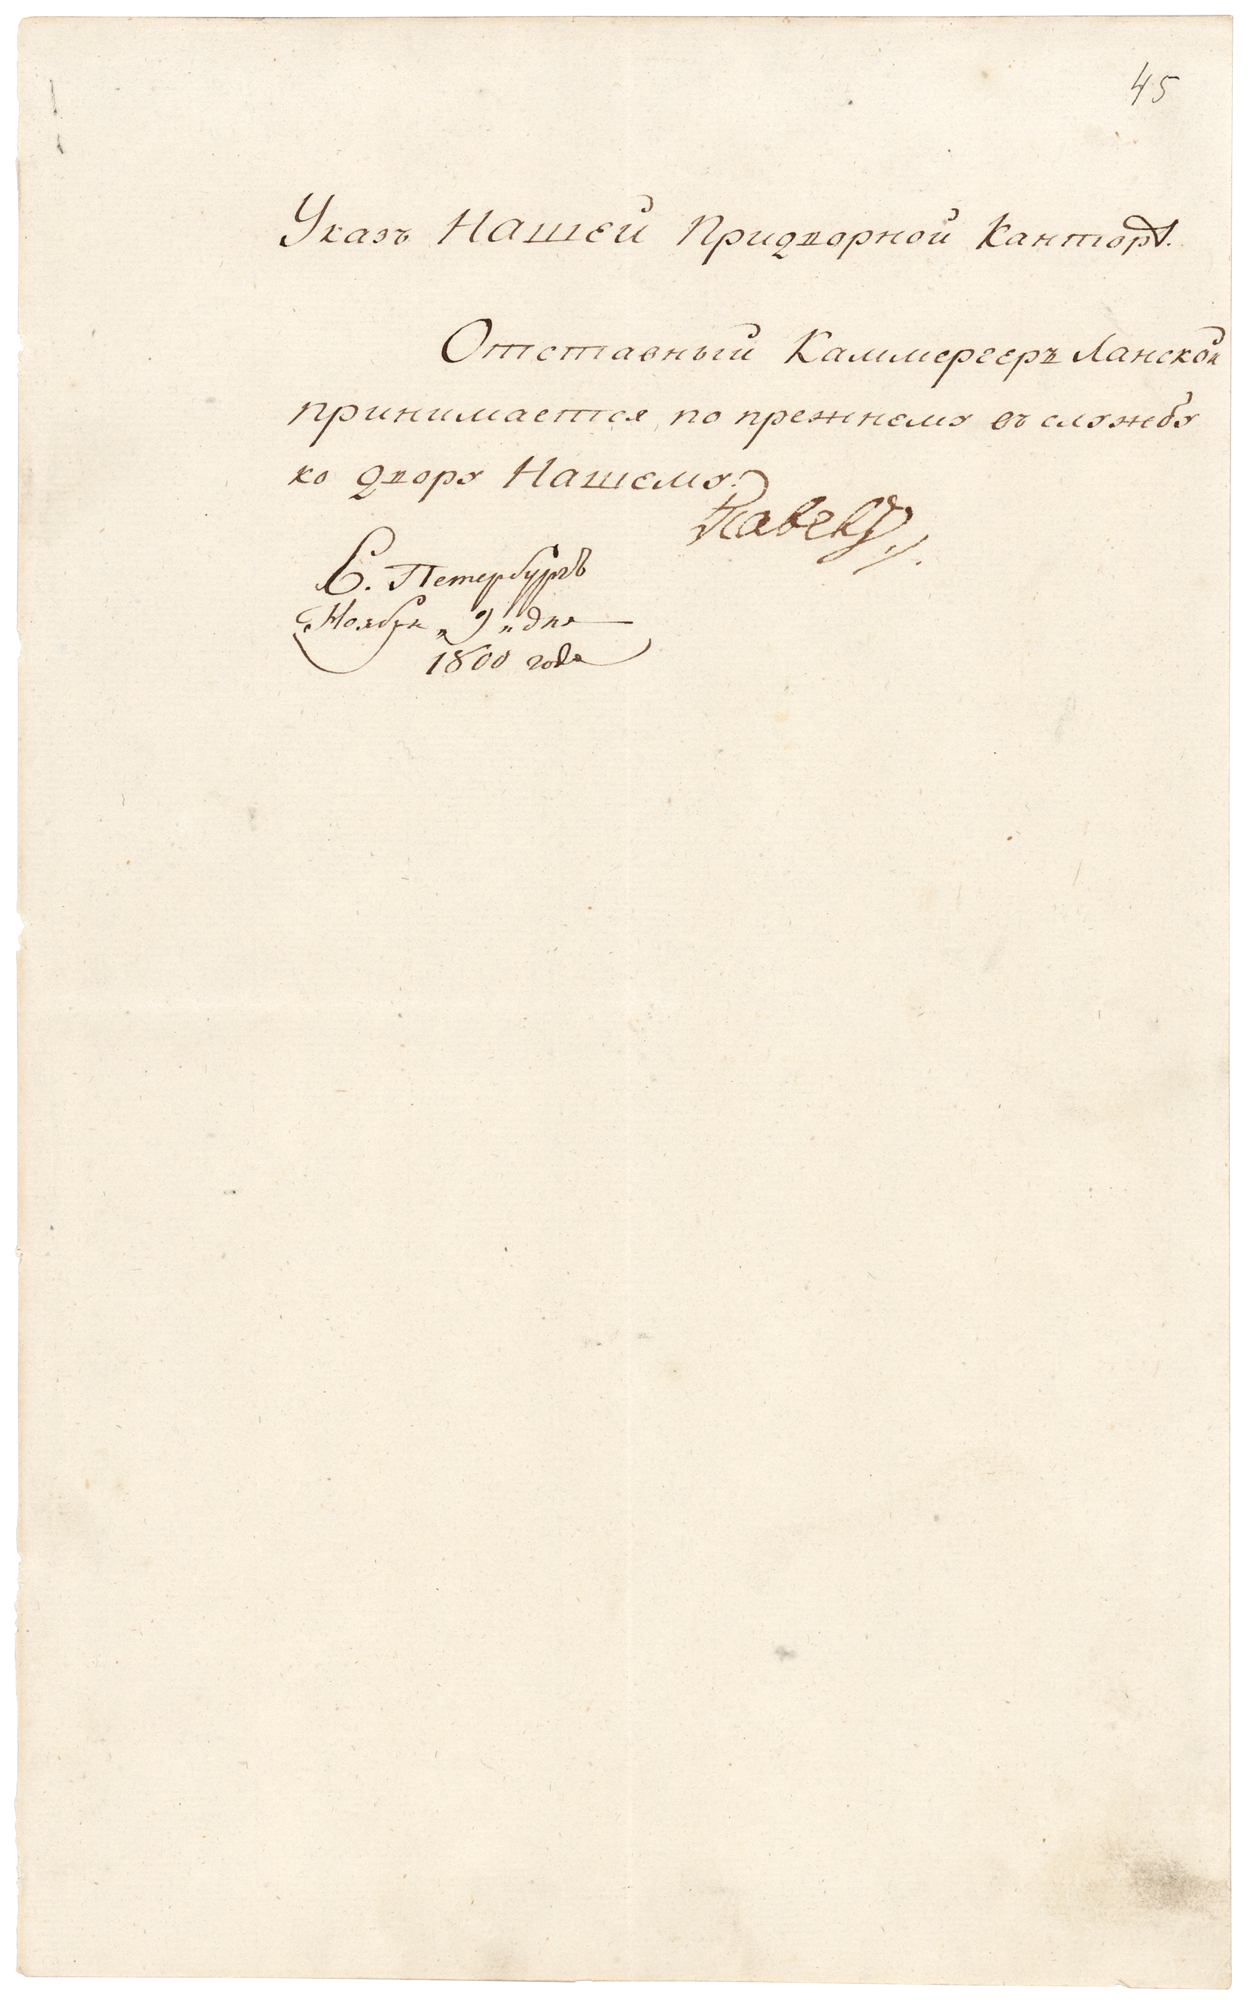 45
Указъ НАШЕЙ Придворной Канторѣ.
Отставный Каммергеръ Ланской
принимается по прежнему въ службу
ко двору Нашему.
Павелъ
С. Петербургъ
Ноября „9„ дня
1800 года